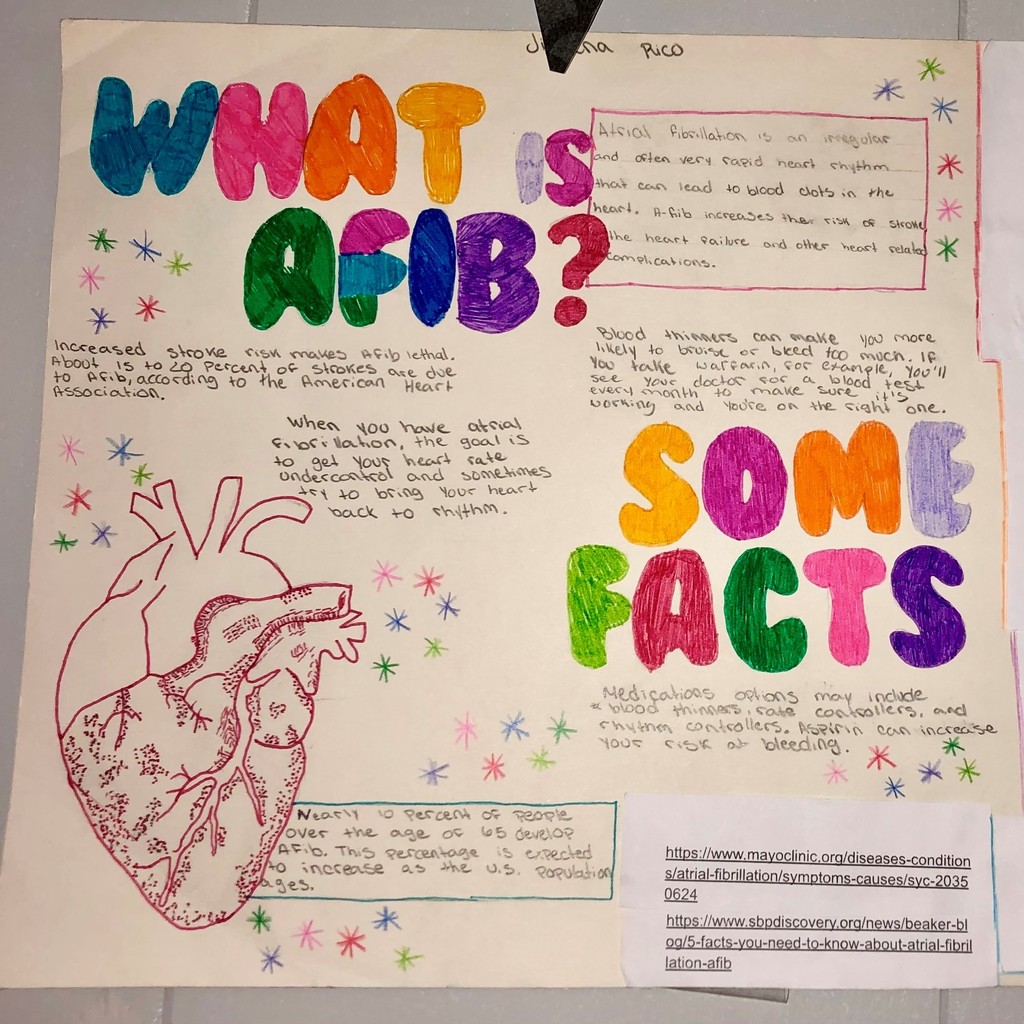 Rico
WHAT IS
AFIB?
Atrial fibrillation is an irregular
and often very rapid heart rhythm
that can lead to blood clots in the
heart. A-fib increases the risk of stroke
the heart failure and other heart related
complications.
Increased stroke risk makes AFib lethal.
About 15 to 20 percent of strokes are due
to AFib, according to the American Heart
Association.
Blood thinners can make you more
likely to bruise or bleed too much. If
you take warfarin, for example, you'll
see your doctor for a blood test
every month to make sure it's
working and you're on the right one.
When you have atrial
fibrillation, the goal is
to get your heart rate
undercontrol and sometimes
try to bring your heart
back to rhythm.
SOME
FACTS
Medications options may include
* blood thinners, rate controllers, and
rhythm controllers. Aspirin can increase
your risk at bleeding.
Nearly 10 percent of people
over the age of 65 develop
AFib. This percentage is expected
to increase as the U.S. population
ages.
https://www.mayoclinic.org/diseases-condition
s/atrial-fibrillation/symptoms-causes/syc-2035
0624
https://www.sbpdiscovery.org/news/beaker-bl
og/5-facts-you-need-to-know-about-atrial-fibri
llation-afib